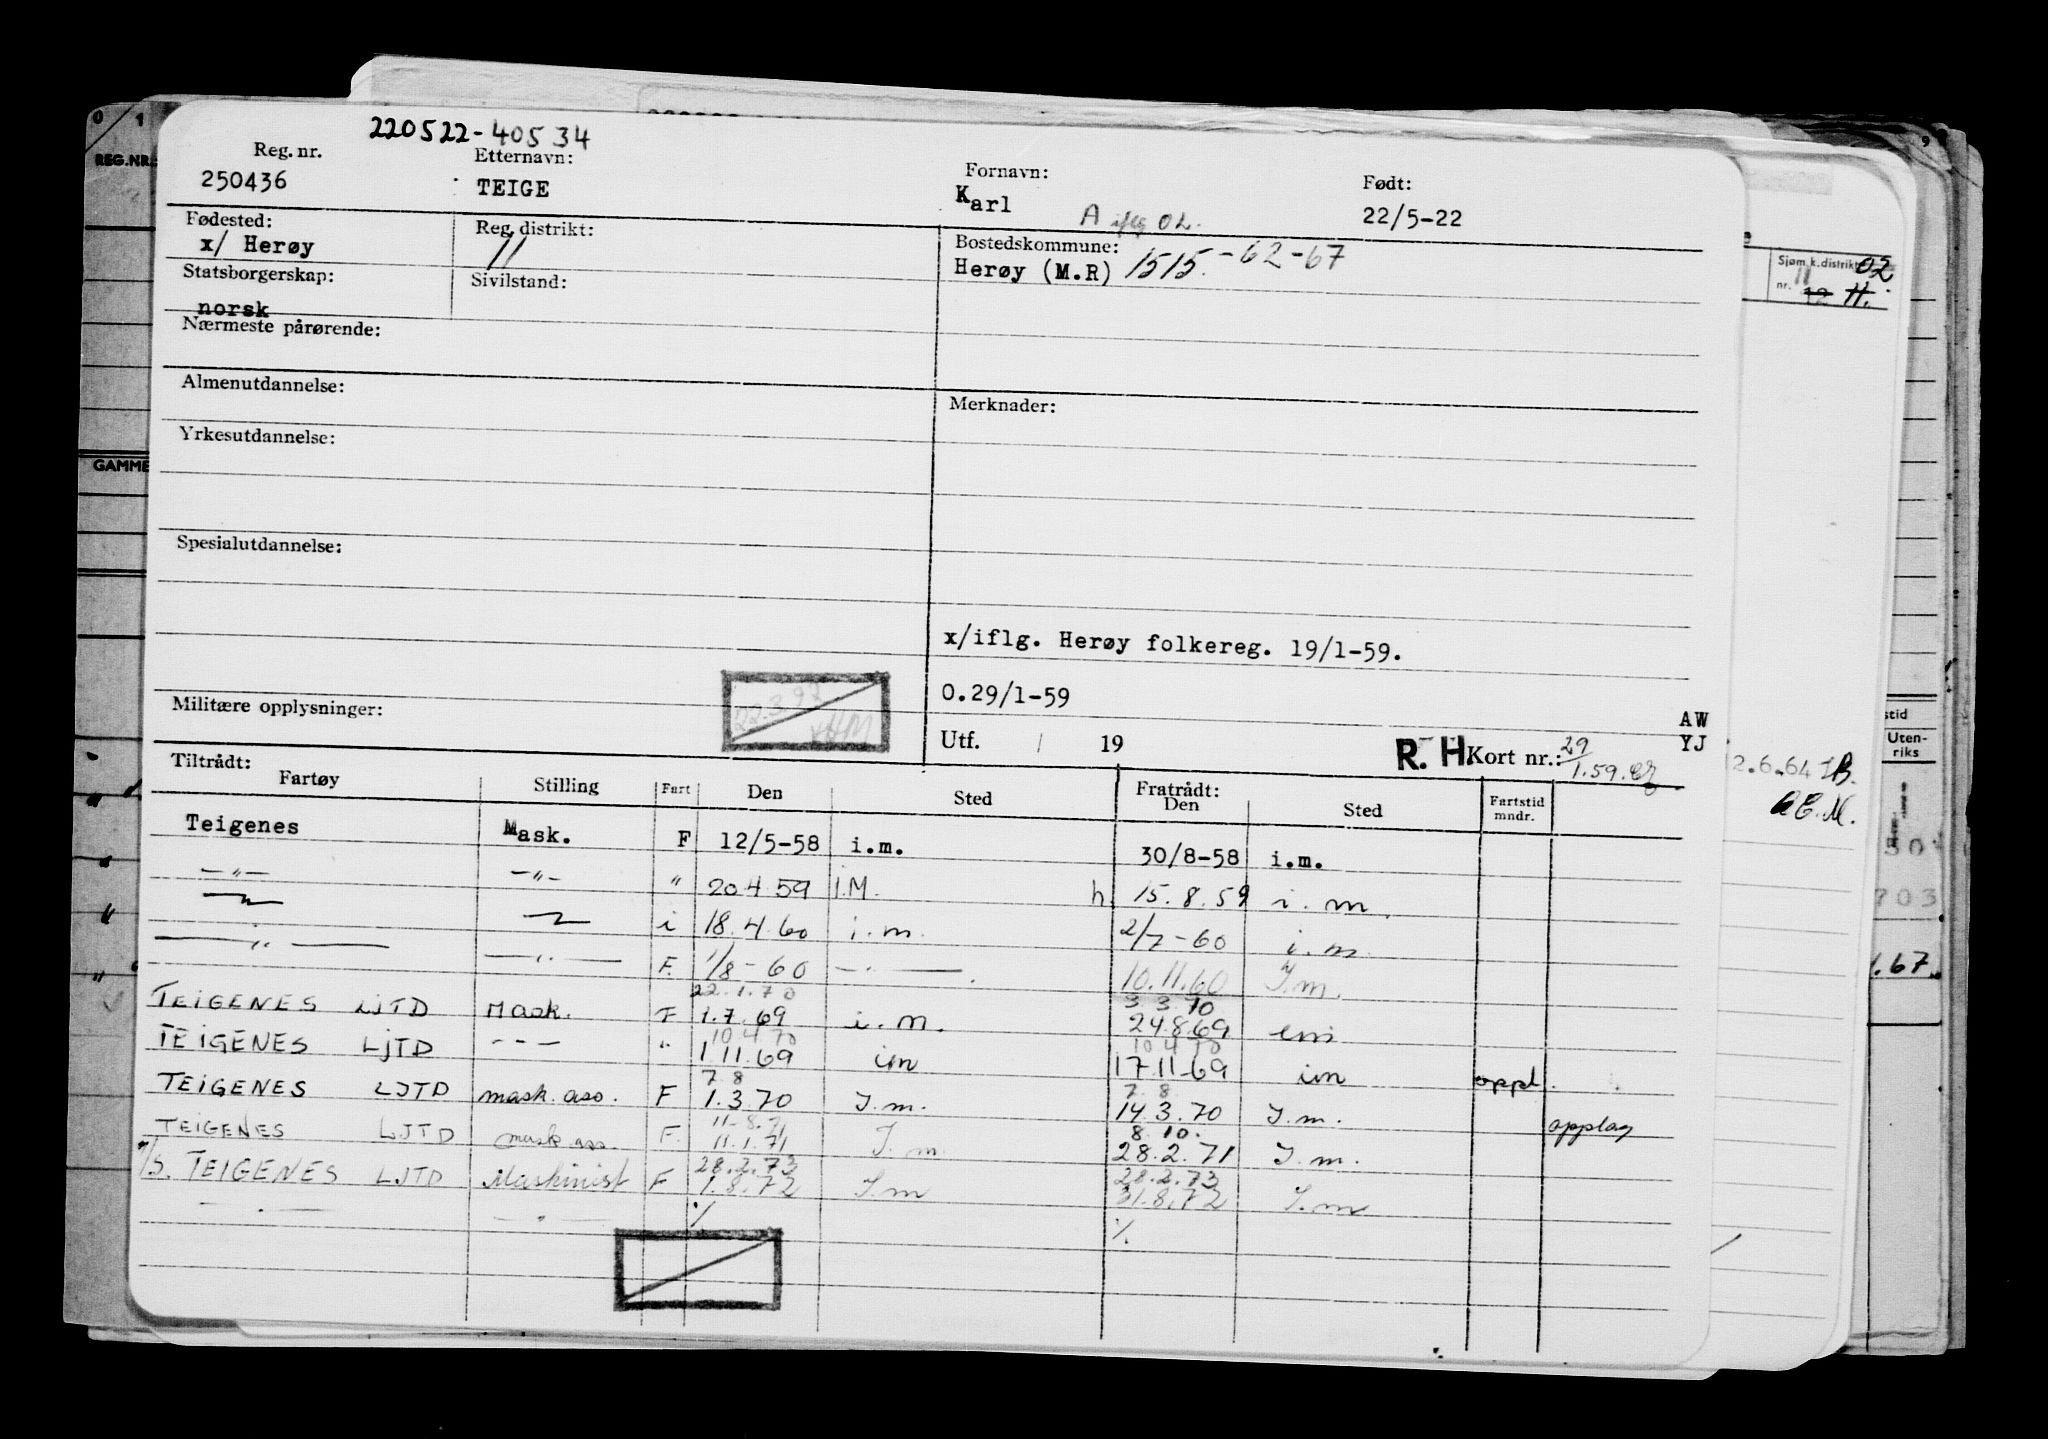 220522-40534
Reg. nr. Etternavn: Fornavn: Født:
250436 TEIGE Karl 22/5-22
A iflg OL.
Fødested: Reg. distrikt: Bostedskommune:
x/ Herøy 11 Herøy (M.R) 1515.-62-67
Statsborgerskap: Sivilstand:
norsk
Nærmeste pårørende:
Almenutdannelse: Merknader:
Yrkesutdannelse:
Spesialutdannelse:
x/iflg. Herøy folkereg. 19/1-59.
O.29/1-59
Militære opplysninger: AW
Utf. / 19 R. H. Kort nr.: 29/1.59. YJ
Tiltrådt: Fratrådt:
Fartøy Stilling Fart Den Sted Den Sted Fartstid mndr.
Teigenes Mask. F 12/5-58 i.m. 30/8-58 i.m.
—"— —"— " 20.4.59 I.M. h 15.8.59 i.m.
i 18.4.60 i.m. 2/7-60 i.m.
—"— —"— F. 1/8-60 —"— 10.11.60 I.m.
22.1.70 3.3.70
TEIGENES LJTD Mask. F 1.7.69 i.m. 24.8.69 em
10 4 70 10 4 70
TEIGENES LJTD - - - " 1 11.69 im 17.11.69 im oppl.
7 8 7. 8
TEIGENES LJTD mask. ass. F 1.3.70 I.m. 14.3.70 I.m. opplag
11-8.71 8.10.
TEIGENES LJTD mask ass. F. 11.1.71 I.m 28.2.71 I.m.
28.2.73 28.2.73
M/S. TEIGENES LJTD Maskinist F 1.8.72 I.m 31.8.72 I.m
—"— —"— % %
0 1
REG.NR.
GAMME
9
Sjøm.k.distrikt 02
nr. 11 12 11.
2.6.64 IB.
stid
Uten-
riks
30
703
1.67